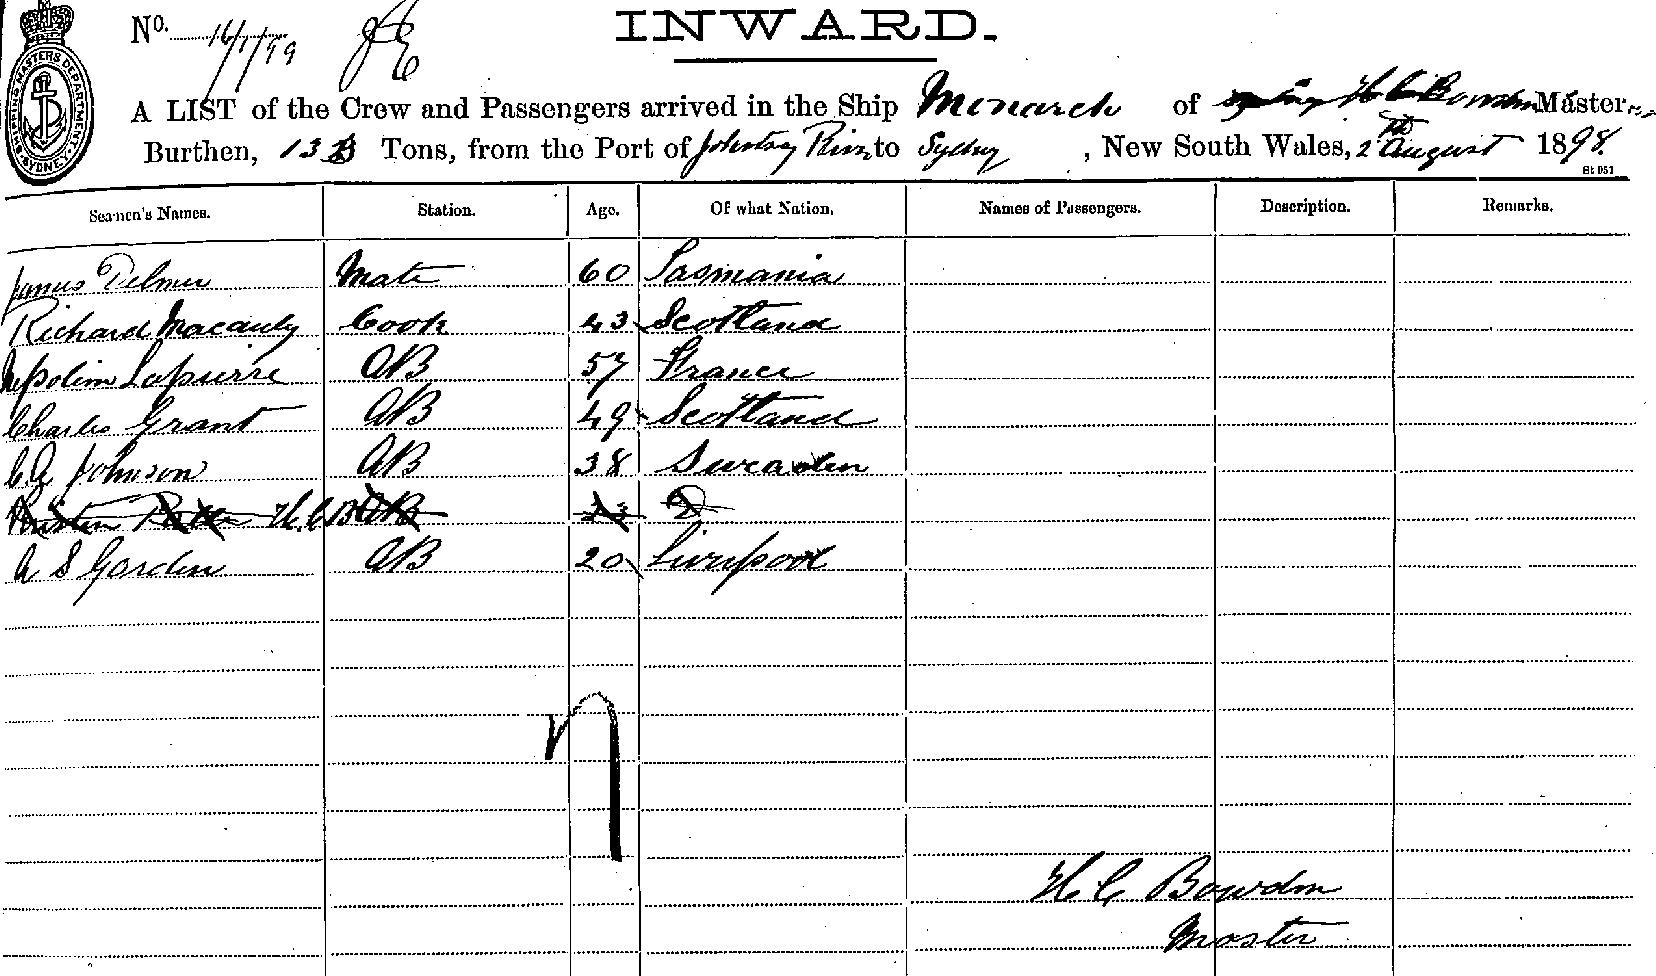 INWARD.
No. 16/1/99
SHIPPING MASTERS DEPARTMENT. SYDNEY.
A LIST of the Crew and Passengers arrived in the Ship Monarch of H C Bowden Master
Burthen, 13 Tons, from the Port of Johnstny River to Sydney, New South Wales, 2th August 1898.
Seamen's Names. Station. Age. Of what Nation. Names of Passengers. Description. Remarks.
James Delmer Mate 60 Tasmania
Richard Macauly Cook 43 Scotland
Lapierre AB 57 France
Charles Grant AB 49 Scotland
Johnson AB 38 Sweaden
H.C.B AB
A S Garden AB 20 Liverpool
7
H C Bowden
Master